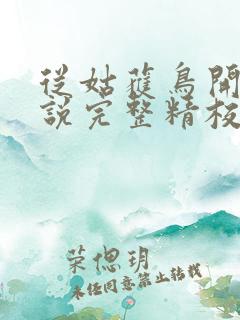 從姑蘿鳥開
說完整精校
荣偲玥
未经同意禁止转载